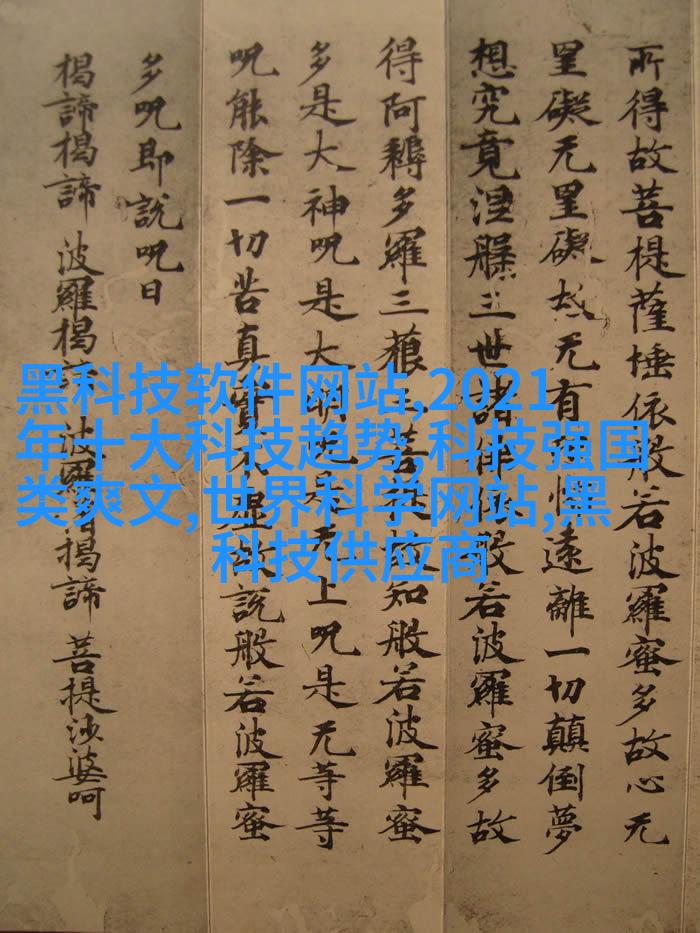 所得故菩提薩埵依般若波羅蜜多故心无
罣礙无罣礙故无有恐怖遠離一切顛倒夢
想究竟涅槃三世諸佛依般若波羅蜜多故
得阿耨多羅三藐三菩提故知般若波羅蜜
多是大神呪是大明呪是无上呪是无等等
呪能除一切苦真實不虛故說般若波羅蜜
多呪即說呪曰
揭諦揭諦 波羅揭諦 波羅僧揭諦 菩提沙婆呵
黑科技软件网站,2021
年十大科技趋势,科技强国
类爽文,世界科学网站,黑
科技供应商